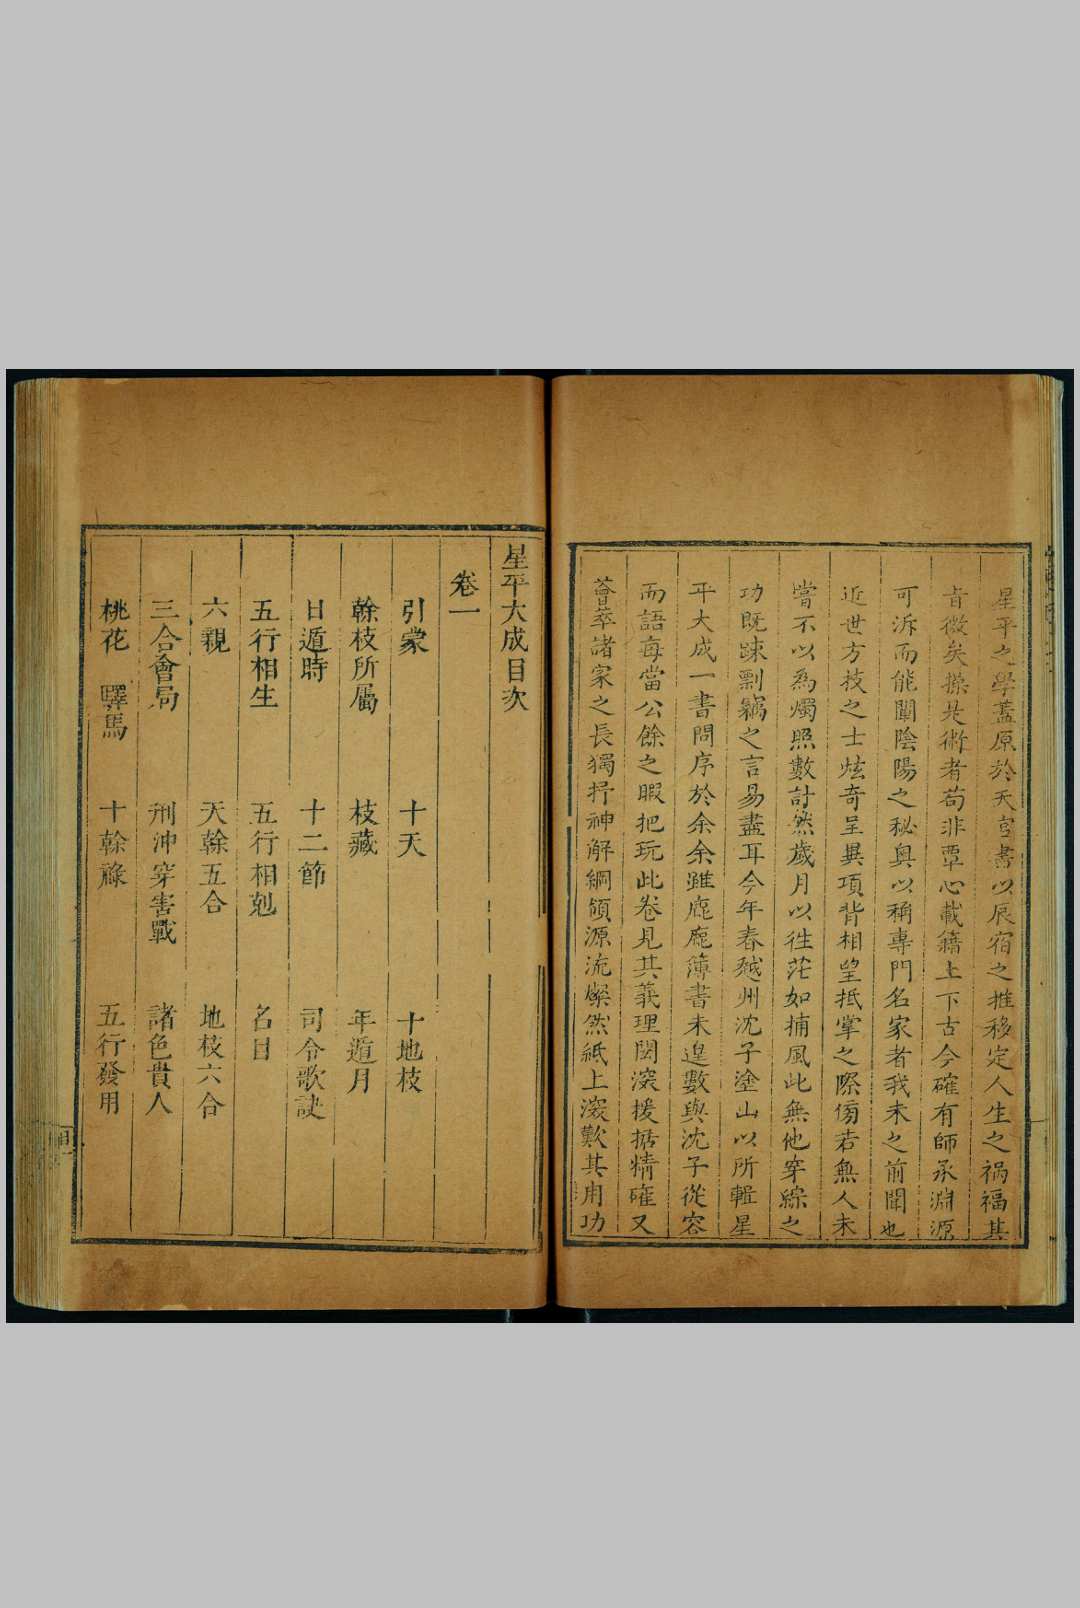 星平之學蓋原於天官書以辰宿之推移定人生之禍福其
旨微矣操是術者苟非覃心載籍上下古今確有師承淵源
可泝而能闡陰陽之秘奥以稱專門名家者我未之前聞也
近世方技之士炫奇呈異項背相望抵掌之際傍若無人未
嘗不以為燭照數計然歲月以徃茫如捕風此無他穿綜之
功既踈剽竊之言易盡耳今年春越州沈子塗山以所輯星
平大成一書問序於余余雖鹿鹿簿書未遑數與沈子從容
而語每當公餘之暇把玩此卷見其義理閎深援據精確又
薈萃諸家之長獨抒神解綱領源流燦然紙上深歎其用功
星平大成目次
卷一
引蒙 十天 十地枝
榦枝所屬 枝藏 年遁月
日遁時 十二節 司令歌訣
五行相生 五行相剋 名目
六親 天榦五合 地枝六合
三合會局 刑沖穿害戰 諸色貴人
桃花 驛馬 十榦祿 五行發用